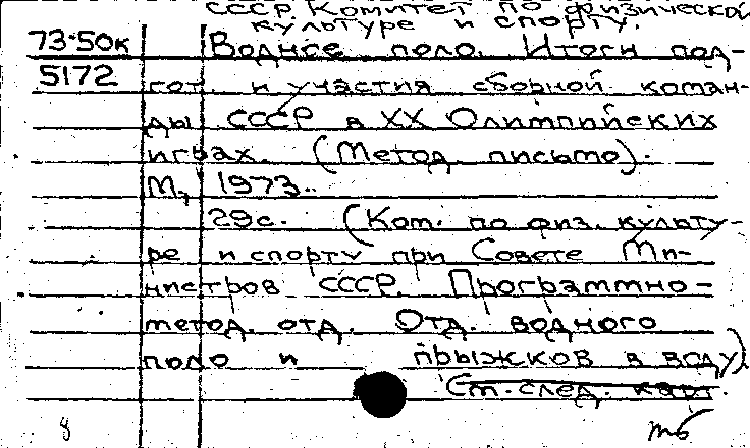 СССР. Комитет по физической
культуре и спорту.
73-50к Водное поло. Итоги под-
5172 гот. и участия сборной коман-
ды СССР в XX Олимпийских
играх. (Метод. письмо).
М., 1973.
29с. (Ком. по физ. культу-
ре и спорту при Совете Ми-
нистров СССР. Программно-
метод. отд. Отд. водного
поло и прыжков в воду)
См. след. карт.
8 мб